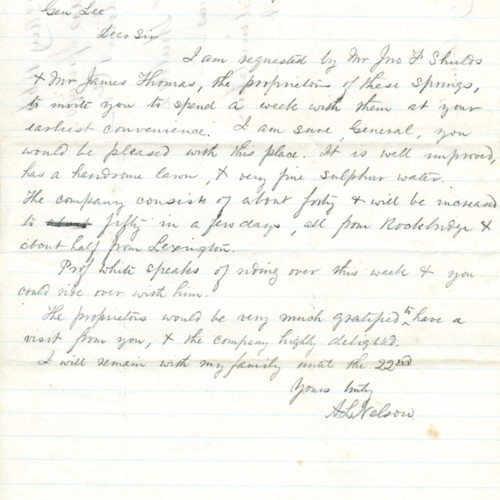 Gen' Lee
Dear Sir
I am requested by Mr Jno F Shields
& Mr James Thomas, the proprietors of these Springs,
to invite you to spend a week with them at your
earliest convenience. I am sure, General, you
would be pleased with this place. It is well improved,
has a handsome lawn, & very fine sulphur water.
The company consists of about forty & will be increased
to about fifty in a few days, all from Rockbridge &
about half from Lexington.
Prof White speaks of riding over this week & you
could ride over with him.
The proprietors would be very much gratified to have a
visit from you, & the company highly delighted.
I will remain with my family until the 22nd
Yours truly
A L Nelson